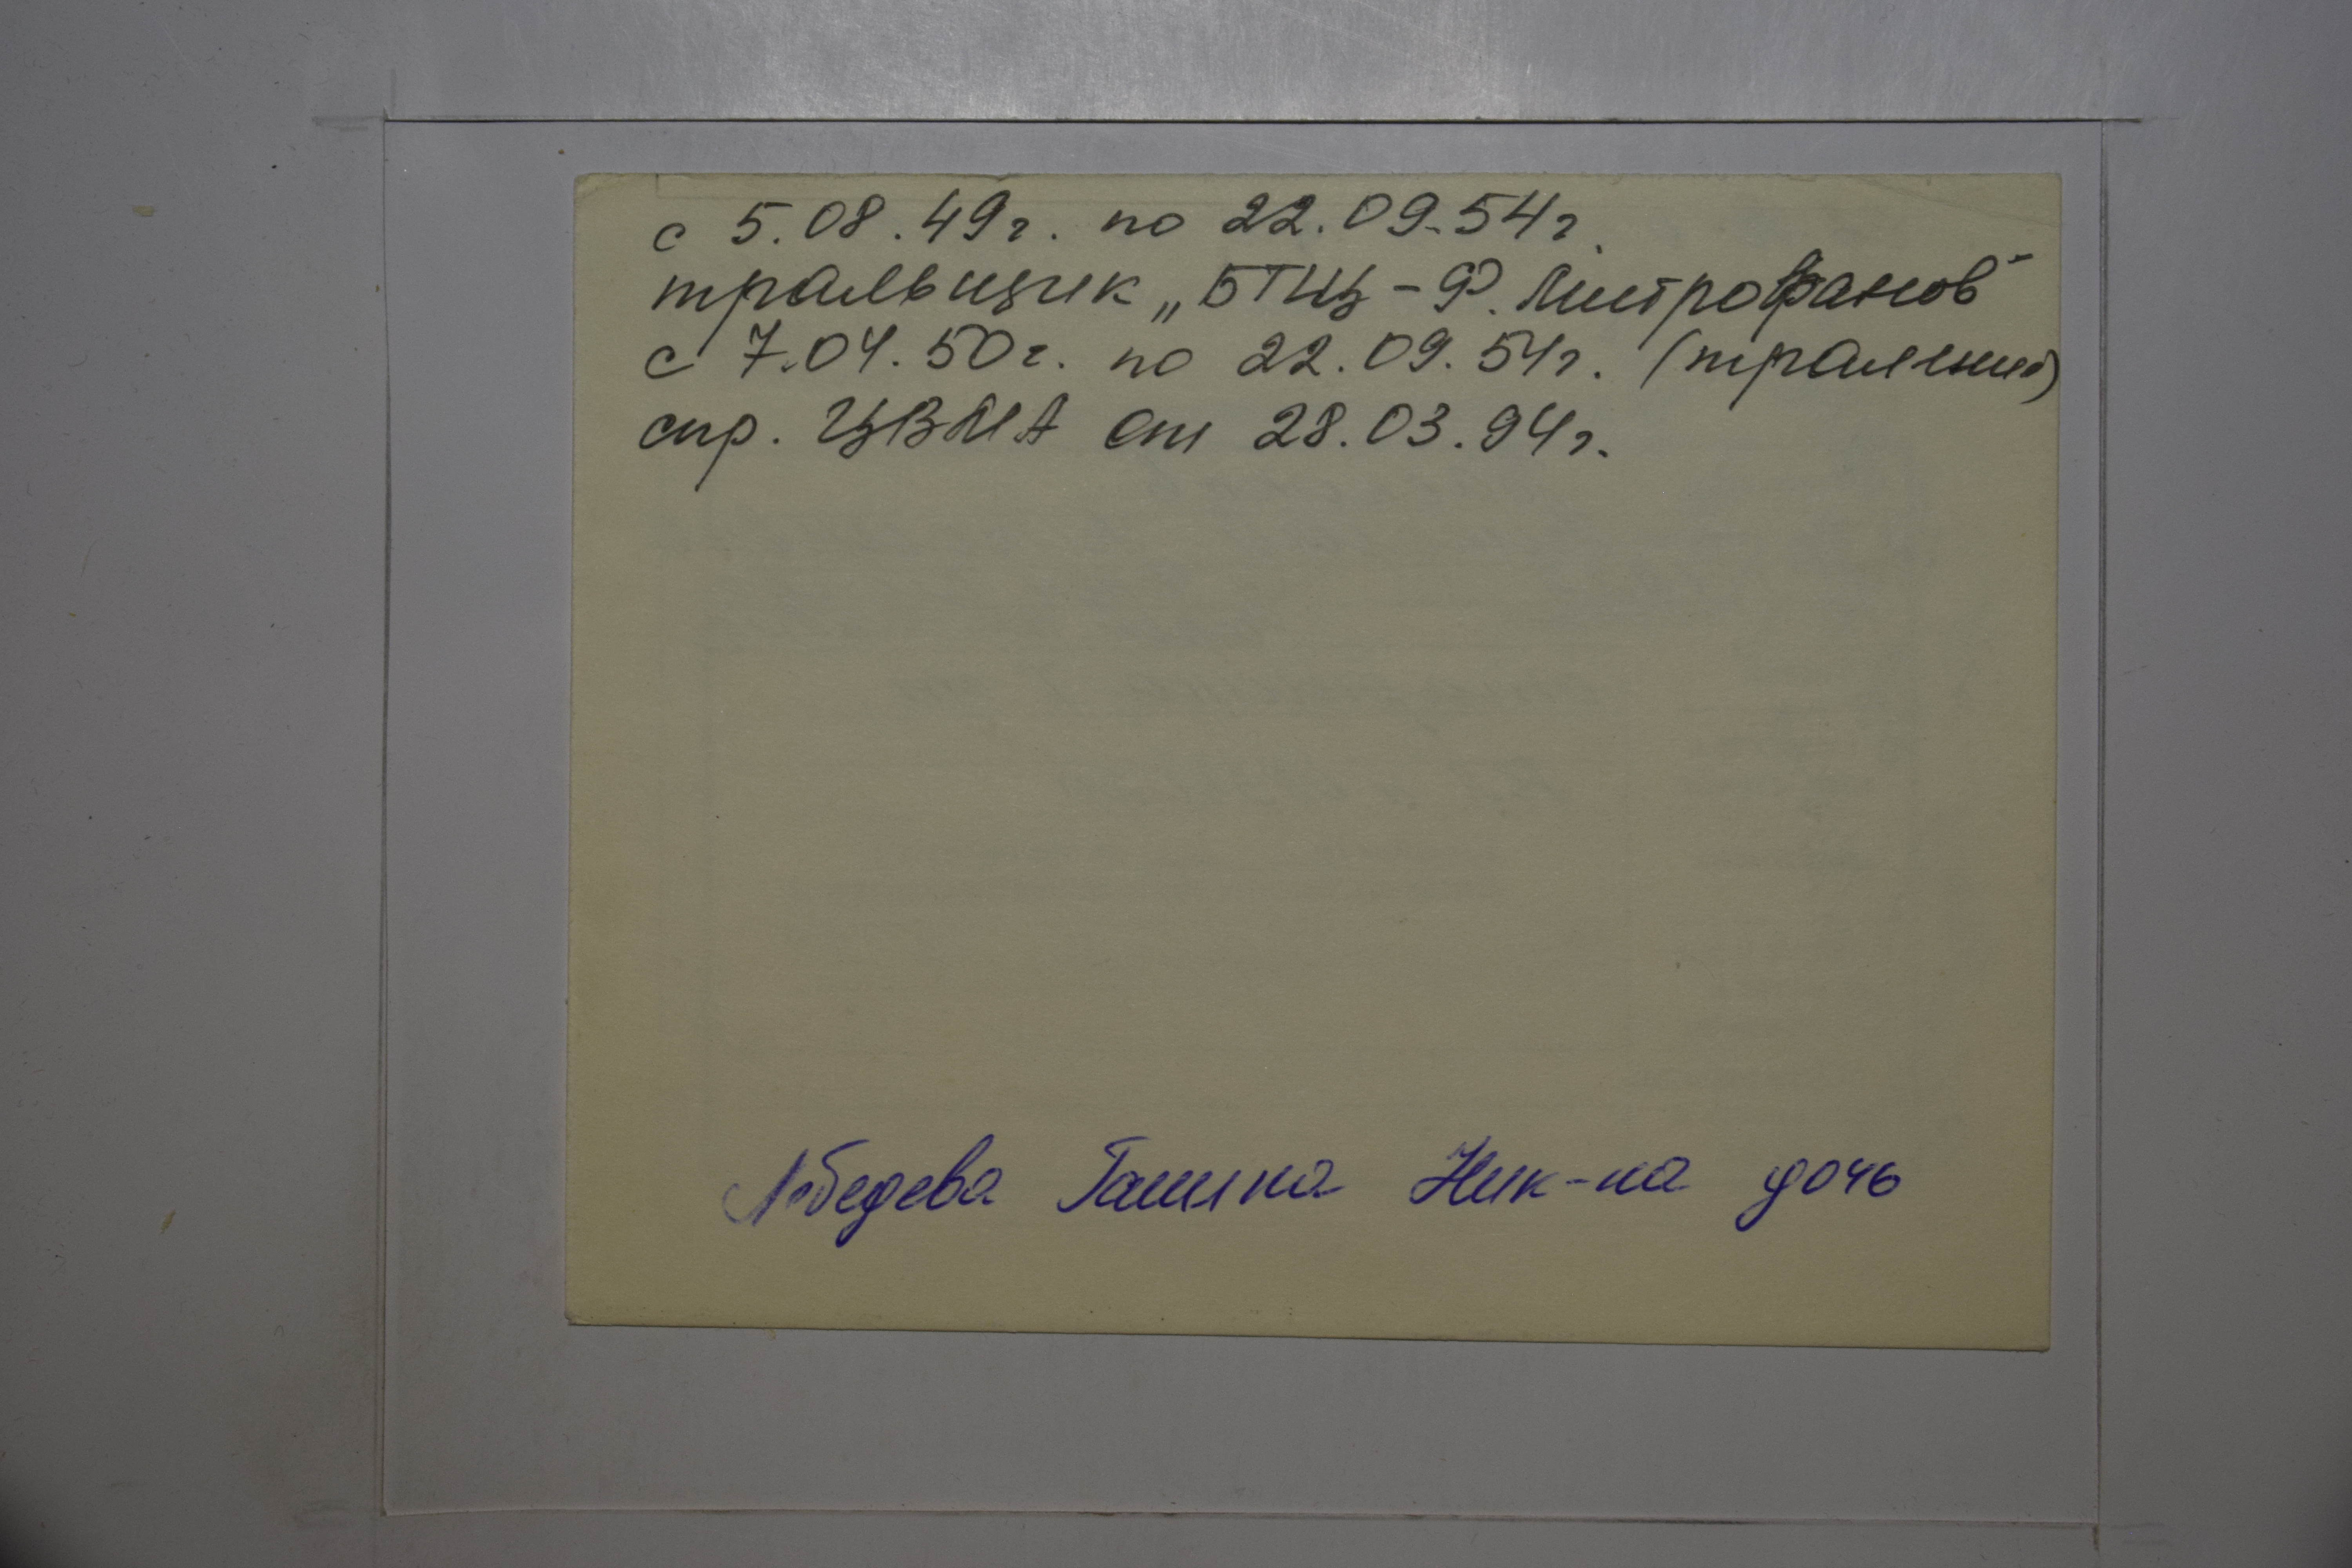 с 5.08.49г. по 22.09.54г.
тральщик „БТЩ-Ф. Митрофанов"
с 7.04.50г. по 22.09.54г. (траление)
спр. ЦВМА от 28.03.94г.
Лебедева Галина Ник-на дочь